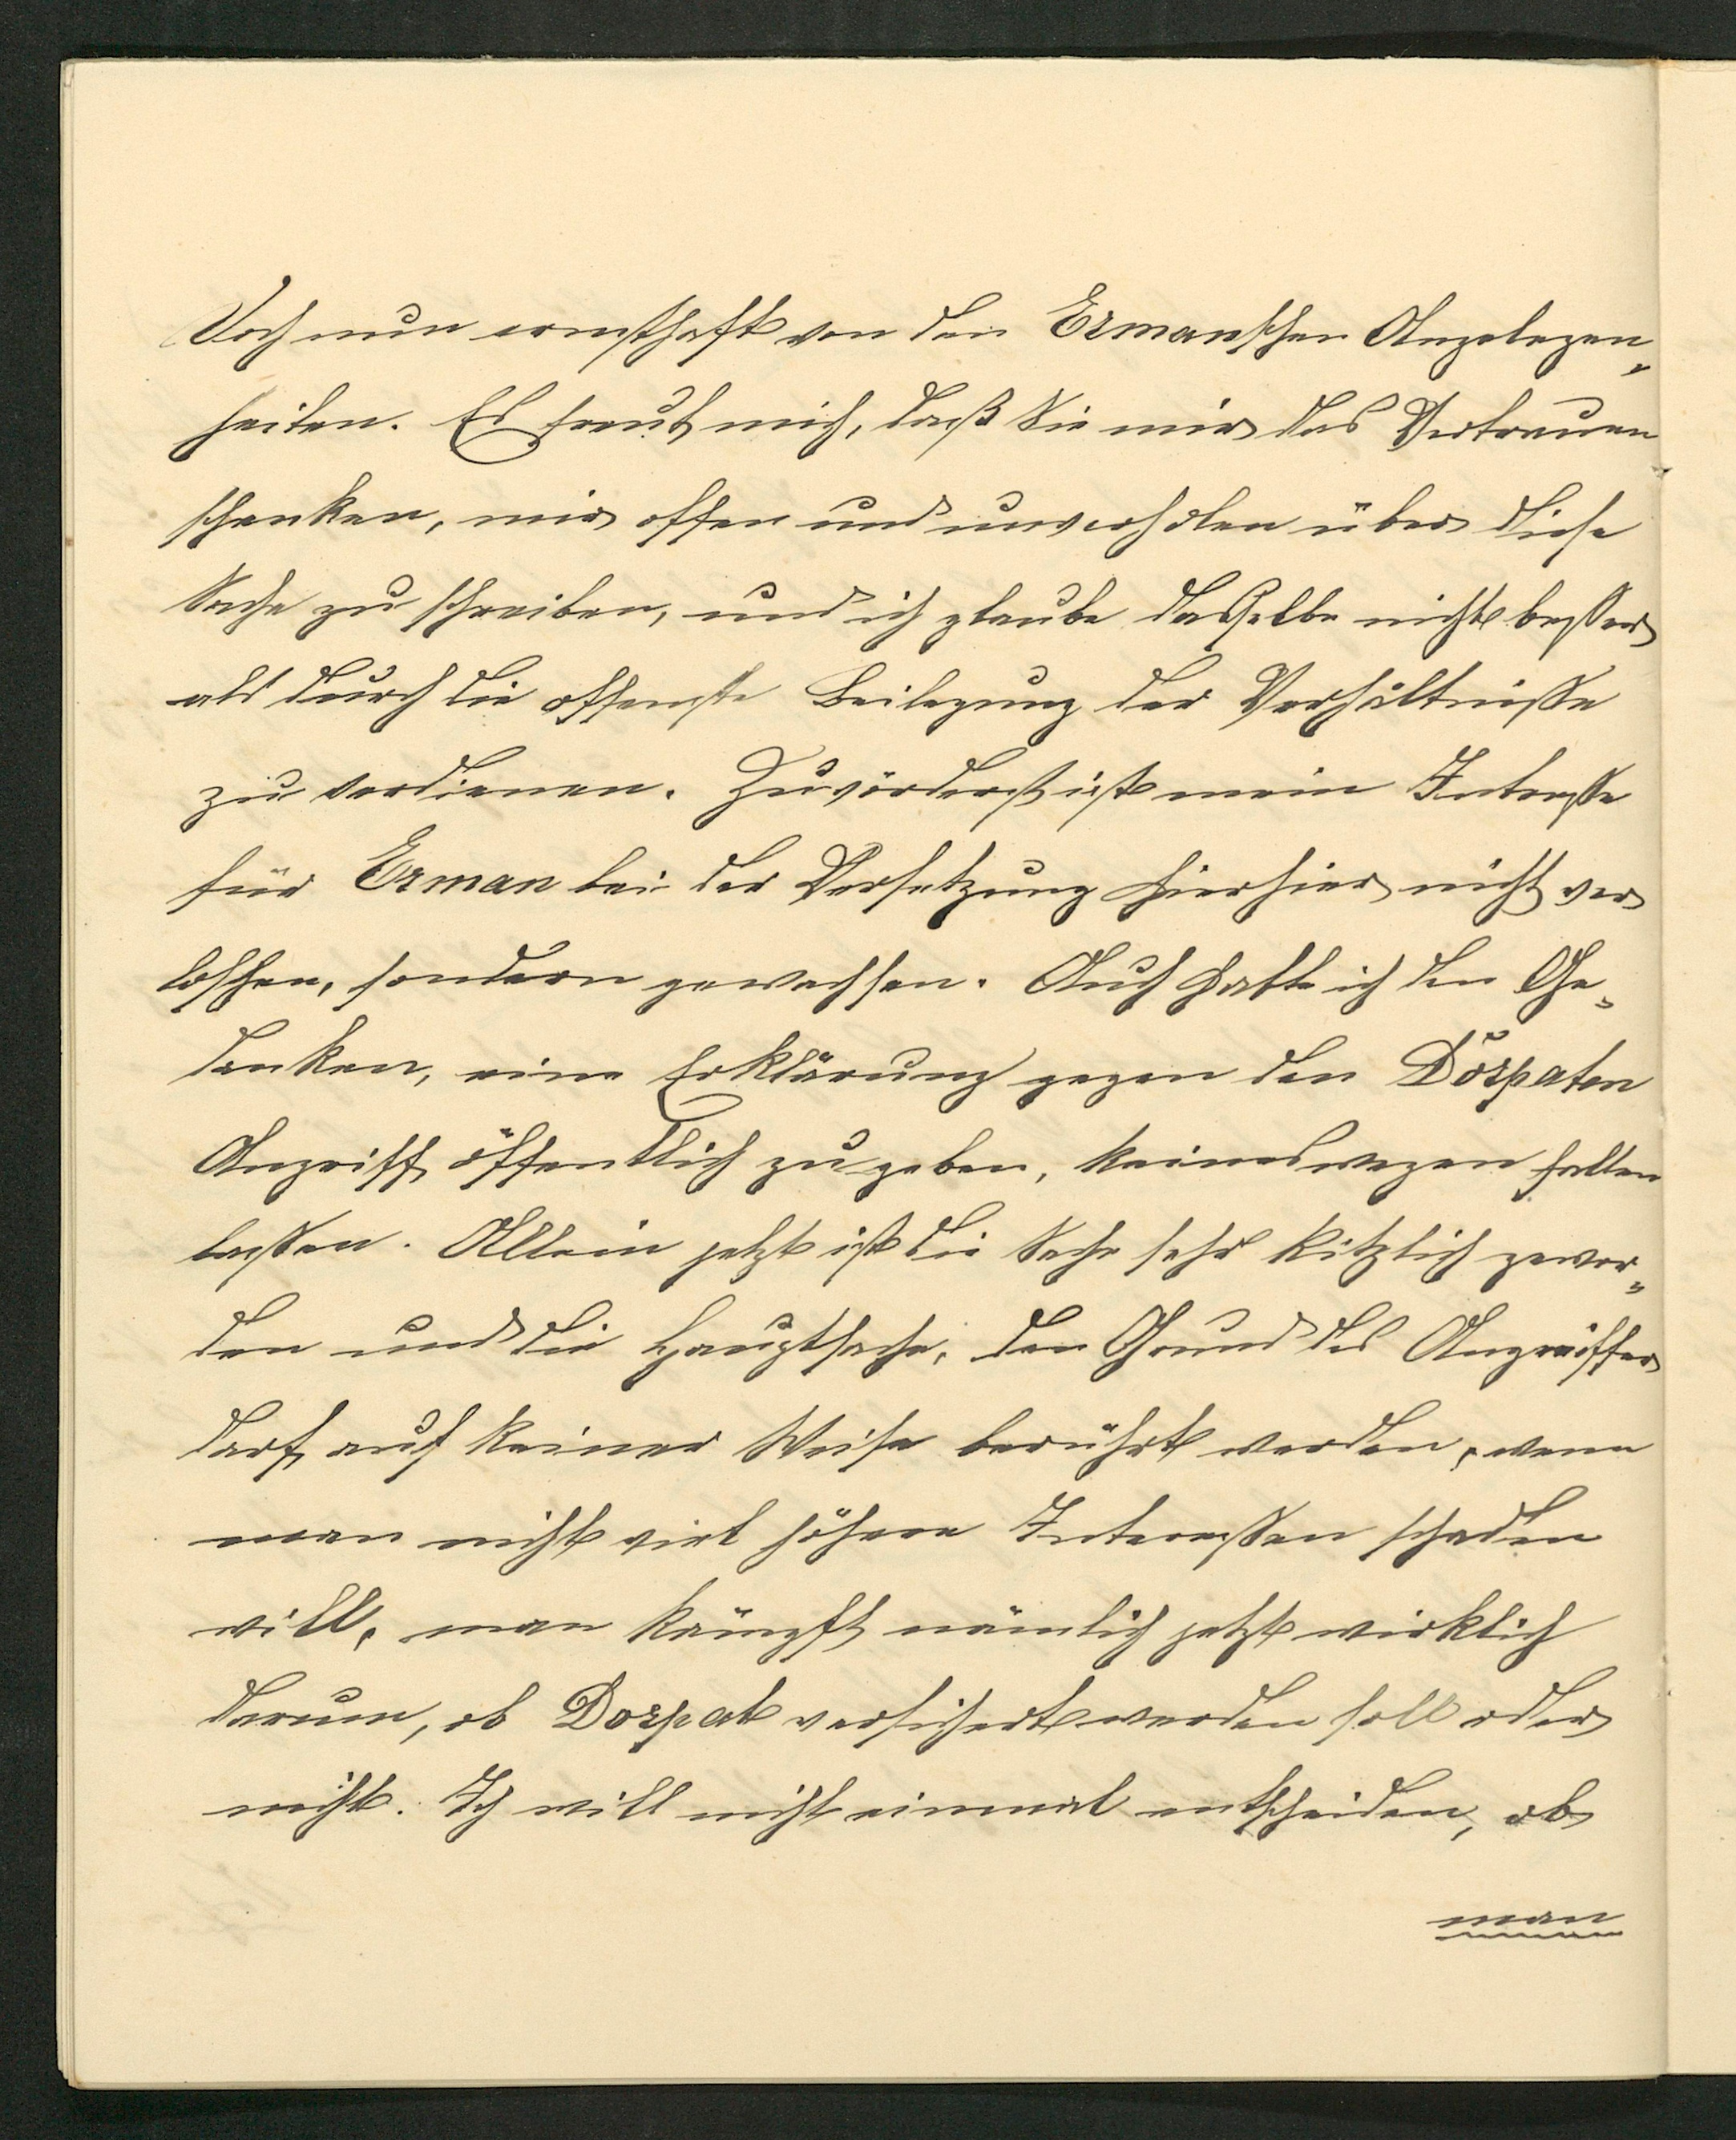 Doch nun ernsthaft von den Ermanschen Angelegen„
heiten. Es freut mich, daß Sie mir das Vertrauen
schenken, mir offen und unverholen über diese
Sache zu schreiben, und ich glaube dasselbe nicht besser
als durch die offenste Beilegung der Verhältnisse
zu verdienen. Zuvörderst ist mein Interesse
für Erman bei der Versetzung hierhier nicht ver
loschen, sondern gewachsen. Auch hatte ich den Ge„
danken, eine Erklärung gegen den Dörpaten
Angriff öffentlich zu geben, keineswegen fallen
lassen. Allein jetzt ist die Sache sehr kitzlich gewor„
den und die Hauptsache, den Grund des Angriffes
darf auf keiner Weise berührt werden, wenn
man nicht viel höhere Interessen schaden
will, man kämpft nämlich jetzt wirklich
darum, ob Dorpat versichert werden soll oder
nicht. Ich will nicht einmal entscheiden, ob
man